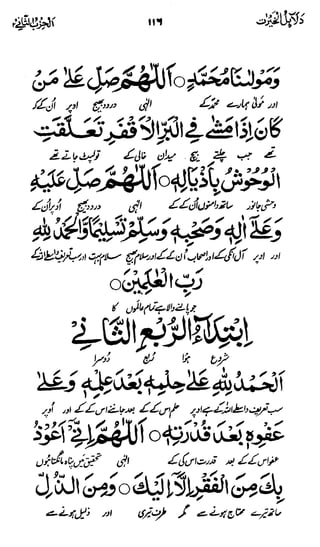 دلائل الخیرات ۱۱۶ الحزب الثانی
وَمَوْلٰنَا مُحَمَّدٍ ○ اَللّٰهُمَّ صَلِّ عَلٰى مَنْ
اور مولٰی ہمارے محمد کے الٰہی درود بھیج اوپر اُن کے کہ
كَانَ اِذَا مَشٰى فِي الْبَرِّ الْاَقْفَرِ تَعَلَّقَتِ
تھے جب چلتے بیچ میدان خالی کے تو لپٹ جاتے تھے
الْوُحُوْشُ بِاَذْيَالِهٖ ○ اَللّٰهُمَّ صَلِّ عَلَيْهِ
وحشی جانور ساتھ دامنوں اُن کے کے الٰہی درود بھیج اوپر اُن کے
وَعَلٰٓى اٰلِهٖ وَصَحْبِهٖ وَسَلِّمْ تَسْلِيْمًا وَّالْحَمْدُ لِلّٰهِ
اور اوپر آل انکی کے اور اصحاب اُن کے کے اور سلام بھیج سلام بہت اور سب تعریف واسطے اللہ کے
رَبِّ الْعٰلَمِيْنَ ○
جو پالنے والا ہے تمام عالموں کا
اِبْتِدَآءُ الرُّبُعِ الثَّانِيْ
شروع ہوا ربع دوسرا
اَلْحَمْدُ لِلّٰهِ عَلٰى حِلْمِهٖ بَعْدَ عِلْمِهٖ وَعَلٰى
سب تعریف واسطے اللہ کے ہے اوپر حلم اس کے کے بعد جاننے اس کے کے اور اوپر
عَفْوِهٖ بَعْدَ قُدْرَتِهٖ ○ اَللّٰهُمَّ اِنِّيْٓ اَعُوْذُ
عفو اس کے کے بعد قدرت اس کی کے الٰہی تحقیق میں پناہ مانگتا ہوں
بِكَ مِنَ الْفَقْرِ اِلَّآ اِلَيْكَ ○ وَمِنَ الذُّلِّ
ساتھ تیرے محتاج ہونے سے مگر طرف تیری اور ذلیل ہونے سے